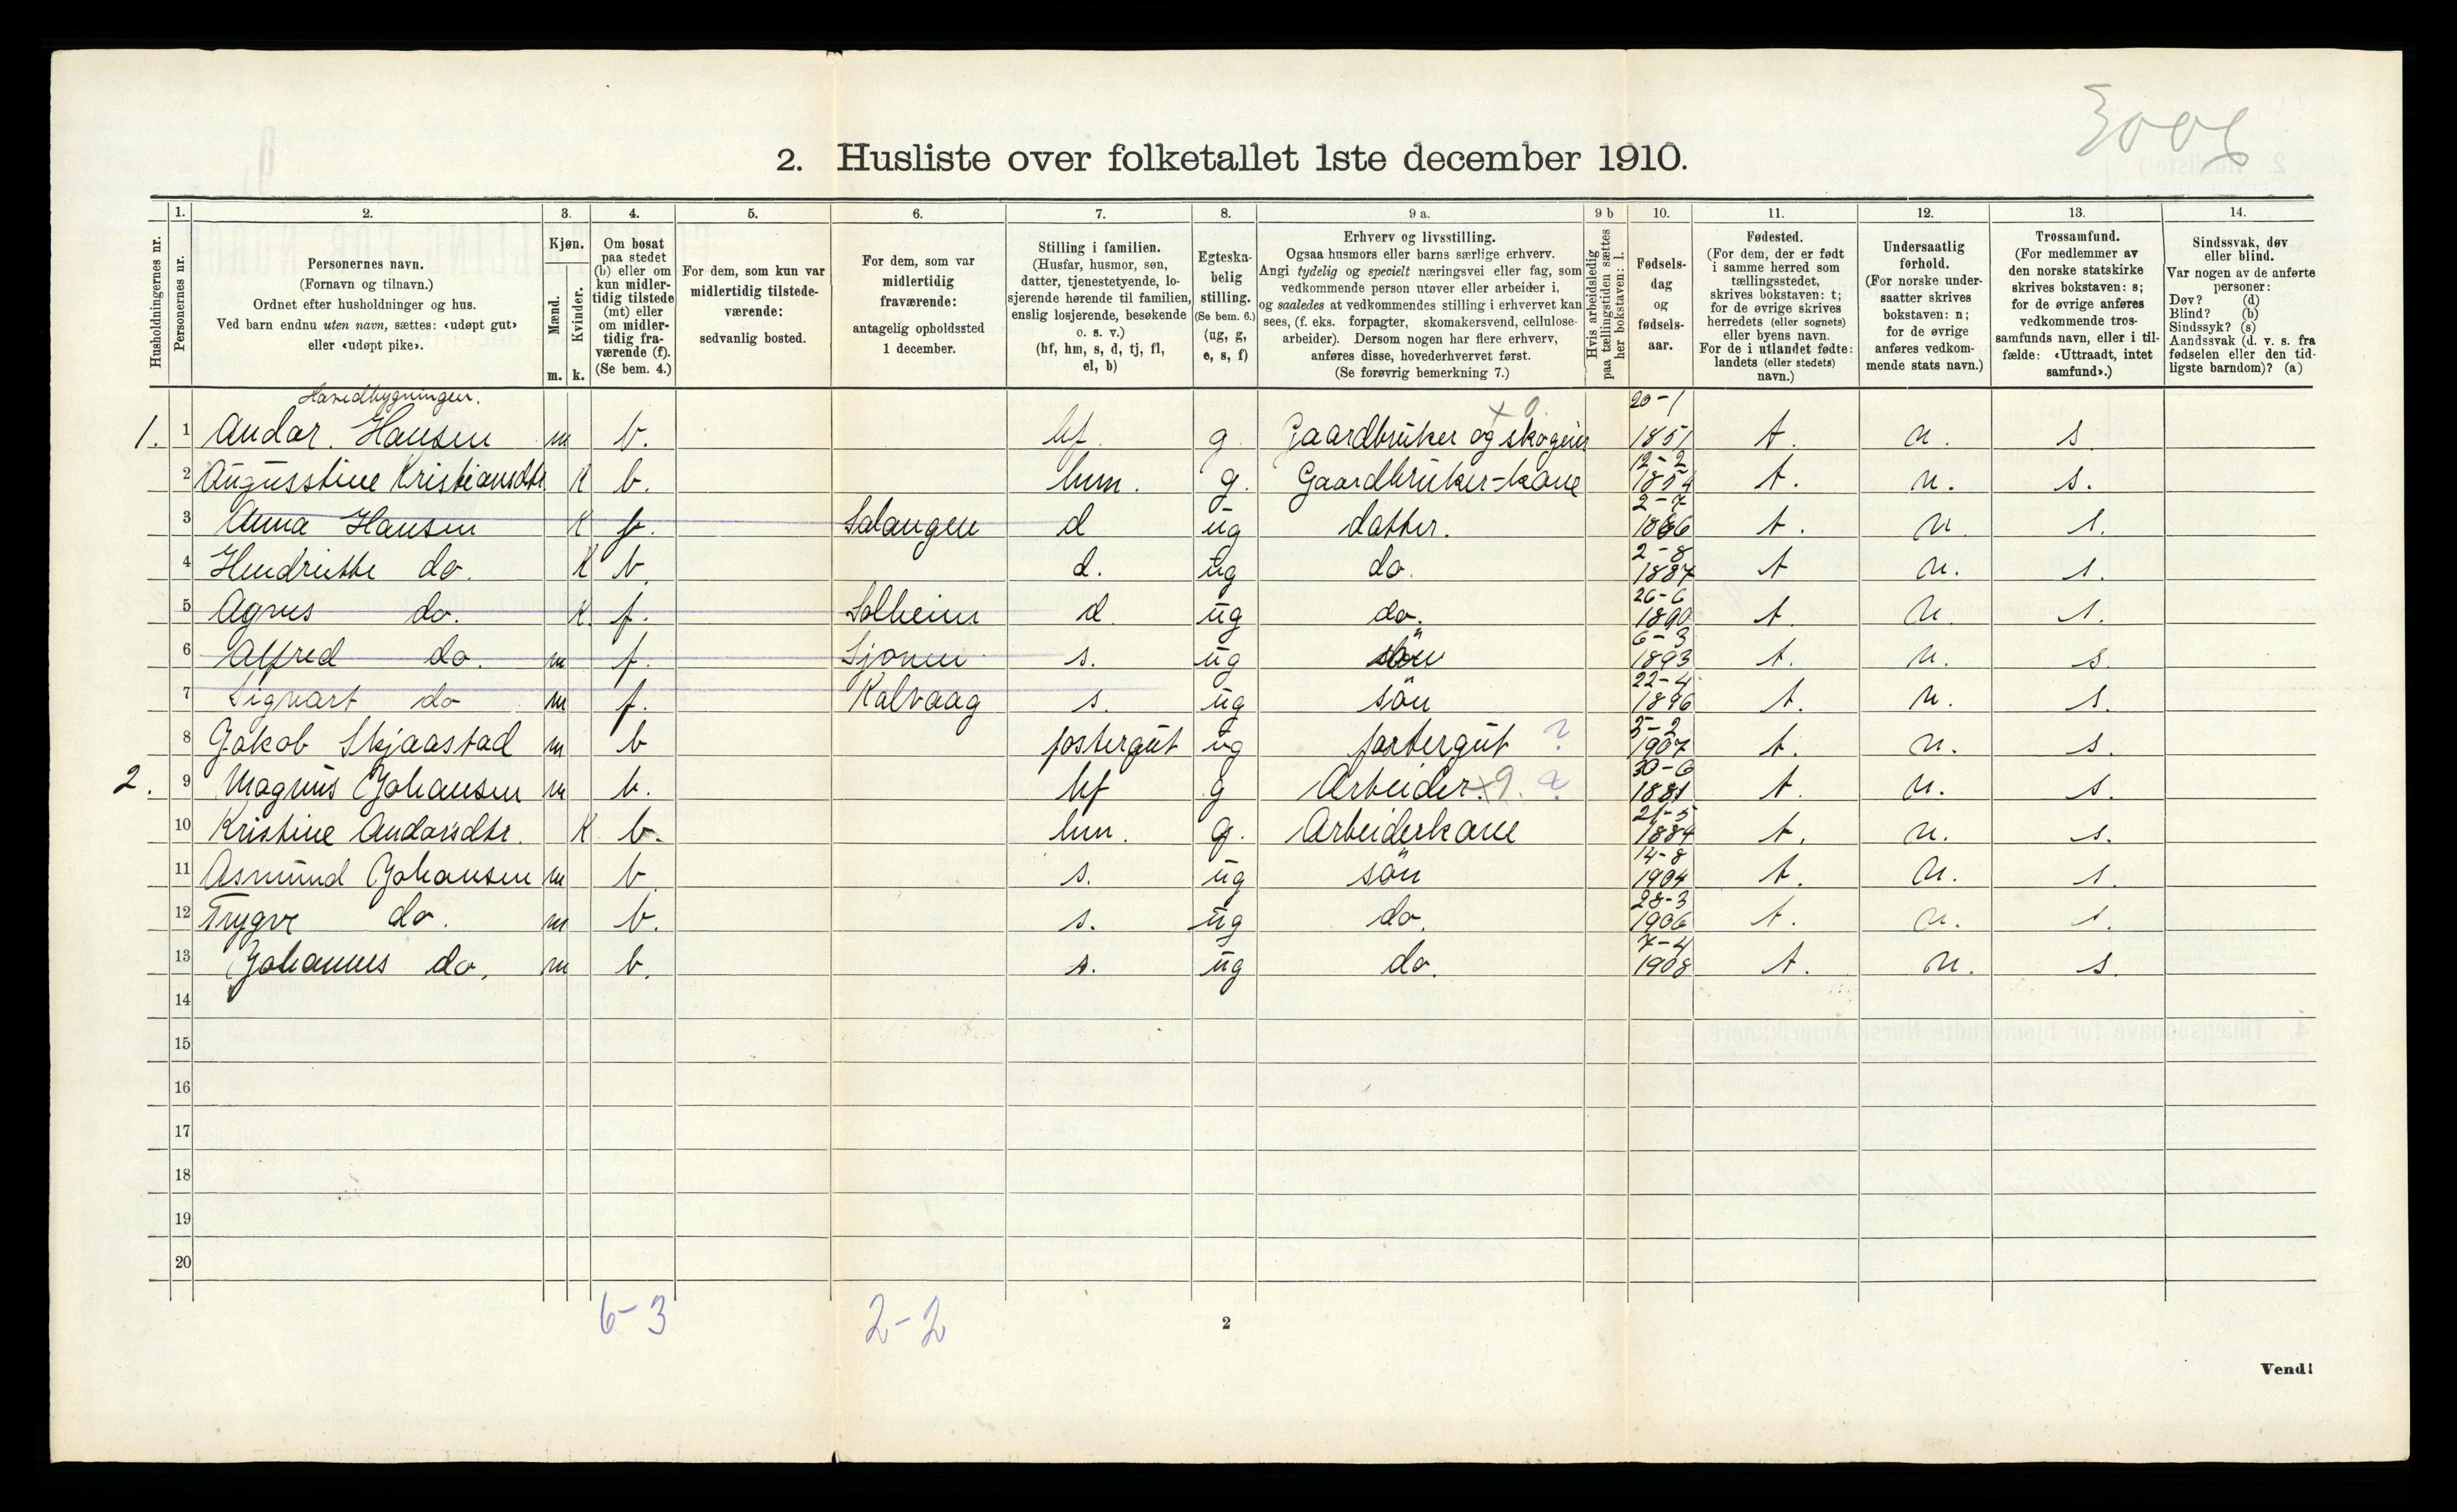 3006
2. Husliste over folketallet 1ste december 1910.
Husholdningernes nr.
1. Personernes nr.
2. Personernes navn. (Fornavn og tilnavn.) Ordnet efter husholdninger og hus. Ved barn endnu uten navn, sættes: «udøpt gut» eller «udøpt pike».
3. Kjøn. Mænd. m. Kvinder. k.
4. Om bosat paa stedet (b) eller om kun midlertidig tilstede (mt) eller om midlertidig fraværende (f). (Se bem. 4.)
5. For dem, som kun var midlertidig tilstedeværende: sedvanlig bosted.
6. For dem, som var midlertidig fraværende: antagelig opholdssted 1 december.
7. Stilling i familien. (Husfar, husmor, søn, datter, tjenestetyende, losjerende hørende til familien, enslig losjerende, besøkende o. s. v.) (hf, hm, s, d, tj, fl, el, b)
8. Egteskabelig stilling. (Se bem. 6.) (ug, g, e, s, f)
9 a. Erhverv og livsstilling. Ogsaa husmors eller barns særlige erhverv. Angi tydelig og specielt næringsvei eller fag, som vedkommende person utøver eller arbeider i, og saaledes at vedkommendes stilling i erhvervet kan sees, (f. eks. forpagter, skomakersvend, cellulosearbeider). Dersom nogen har flere erhverv, anføres disse, hovederhvervet først. (Se forøvrig bemerkning 7.)
9 b Hvis arbeidsledig paa tællingstiden sættes her bokstaven: l.
10. Fødselsdag og fødselsaar.
11. Fødested. (For dem, der er født i samme herred som tællingsstedet, skrives bokstaven: t; for de øvrige skrives herredets (eller sognets) eller byens navn. For de i utlandet fødte: landets (eller stedets) navn.)
12. Undersaatlig forhold. (For norske undersaatter skrives bokstaven: n; for de øvrige anføres vedkommende stats navn.)
13. Trossamfund. (For medlemmer av den norske statskirke skrives bokstaven: s; for de øvrige anføres vedkommende trossamfunds navn, eller i tilfælde: «Uttraadt, intet samfund».)
14. Sindssvak, døv eller blind. Var nogen av de anførte personer: Døv? (d) Blind? (b) Sindssyk? (s) Aandssvak (d. v. s. fra fødselen eller den tidligste barndom)? (a)
Hovedbygningen.
1. 1 Andor. Hansen m b. hf. g Gaardbruker og skogeier 20-1 1851 t. n. s.
2 Augusstine Kristiansdtr K b. hm. g. Gaardbruker-kone 12-2 1854 t. n. s.
3 Anna Hansen K f. Salangen d ug datter. 2-7 1886 t. n s.
4 Hendrikke do. K b. d. ug do. 2-8 1887 t n. s.
5 Agnes do. K. f. Solheim d ug do. 26-6 1890 t. n. s.
6 Alfred do. m f. Sjonen s. ug sön 6-3 1893 t. n. s.
7 Sigvart do m f. Kalvaag s. ug sön 22-4 1896 t. n. s.
8 Jakob Skjaastad m b fostergut ug fostergut ? 5-2 1907 t. n. s.
2. 9 Magnus Johansen m b. hf g Arbeider. x9. ? 30-6 1881 t. n. s.
10 Kristine Andorsdtr. K b. hm. g. Arbeiderkone 21-5 1884 t. n. s.
11 Asmund Johansen m b s. ug sön 14-8 1904 t. n. s.
12 Trygve do. m b. s. ug do. 28-3 1906 t. n. s.
13 Johannes do. m b. s. ug do. 7-4 1908 t. n. s.
14
15
16
17
18
19
20
6-3 2-2
2
Vend!